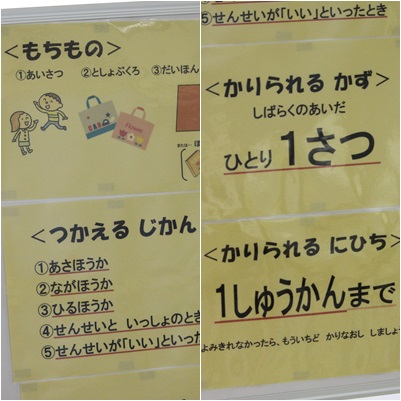 <もちもの>
①あいさつ ②としょぶくろ ③だいほん
<つかえる じかん
①あさほうか
②ながほうか
③ひるほうか
④せんせいと いっしょのとき
⑤せんせいが「いい」といった
⑤せんせいが「いい」といったとき
<かりられる かず>
しばらくのあいだ
ひとり 1さつ
<かりられる にひち>
1しゅうかんまで
よみきれなかったら、もういちど かりなおし しましょ